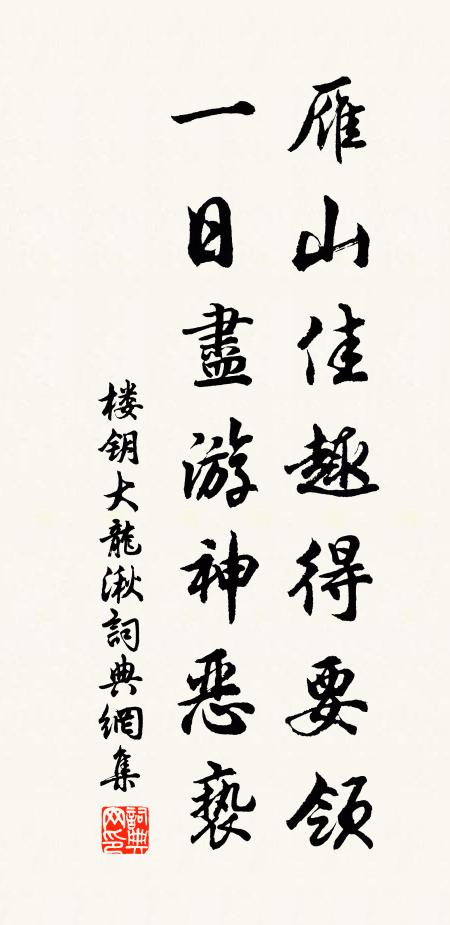 雁山佳趣得要领
一日盡游神恶亵
楼钥大龍湫詞典網集
詞典网印